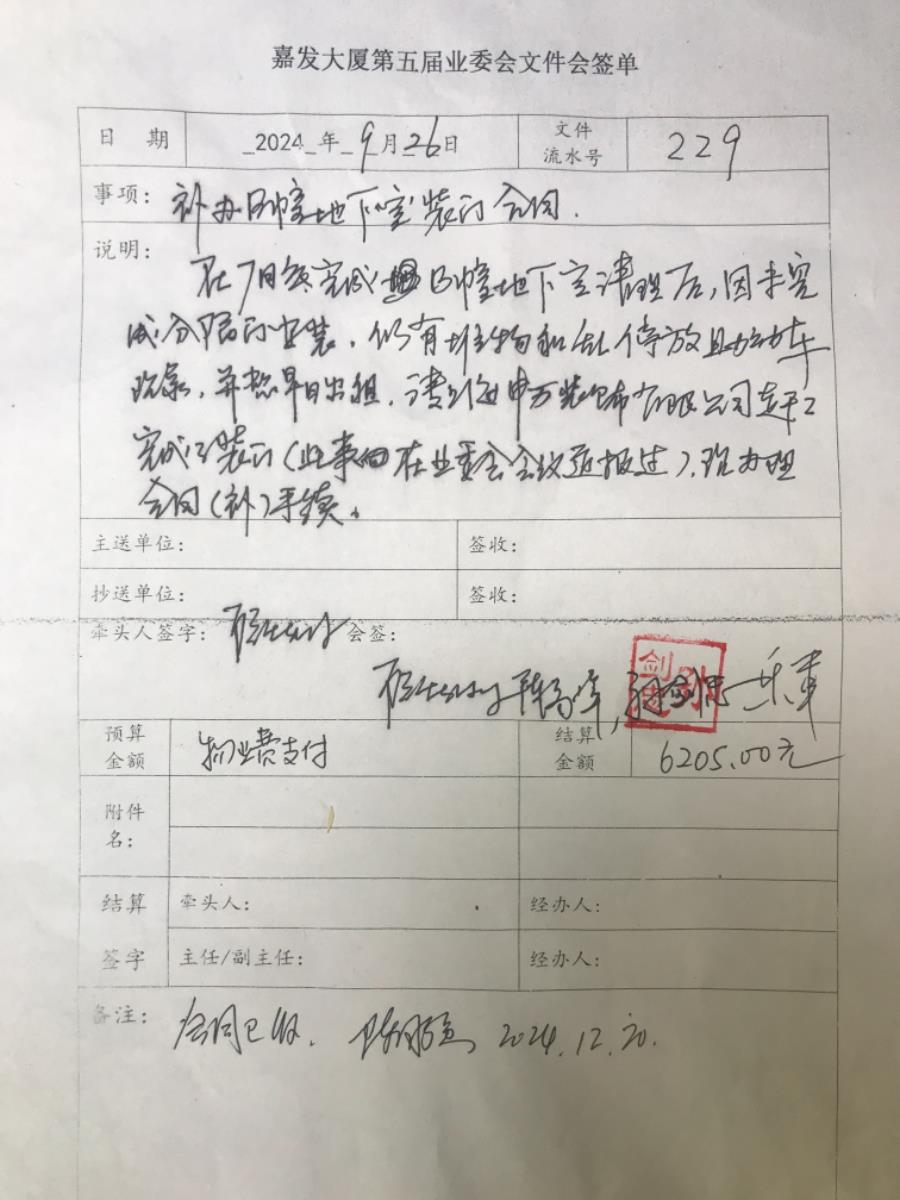 嘉发大厦第五届业委会文件会签单
日 期 2024 年 9月26日 文件流水号 229
事项: 补办B幢地下室装门合同.
说明:
在7月领完成 B幢地下室清理后,因未完
成分隔门安装,仍有堆物和乱停放助动车
现象,并想早日出租,请上海申万装饰有限公司先开工
完成了装门(此事曾在业委会会议通报过),现办理
合同(补)手续。
主送单位: 签收:
抄送单位: 签收:
牵头人签字: 会签:
预算金额 物业费支付 结算金额 6205.00元
附件名:
结算 牵头人: 经办人:
签字 主任/副主任: 经办人:
备注: 合同已收. 2024.12.20.